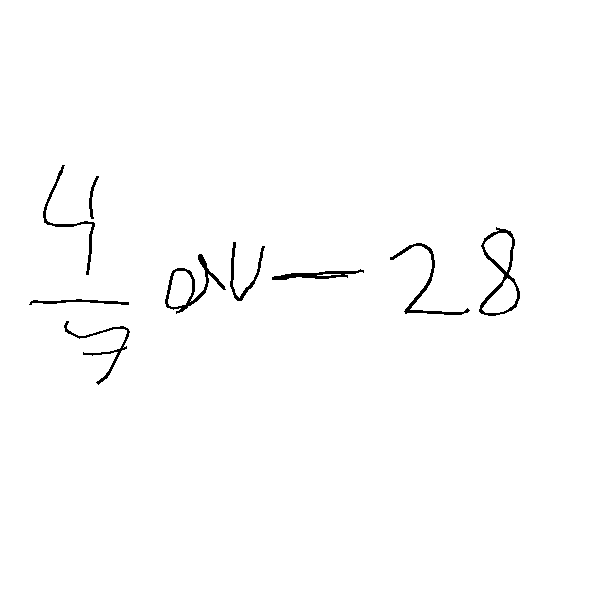 4/7 av — 28